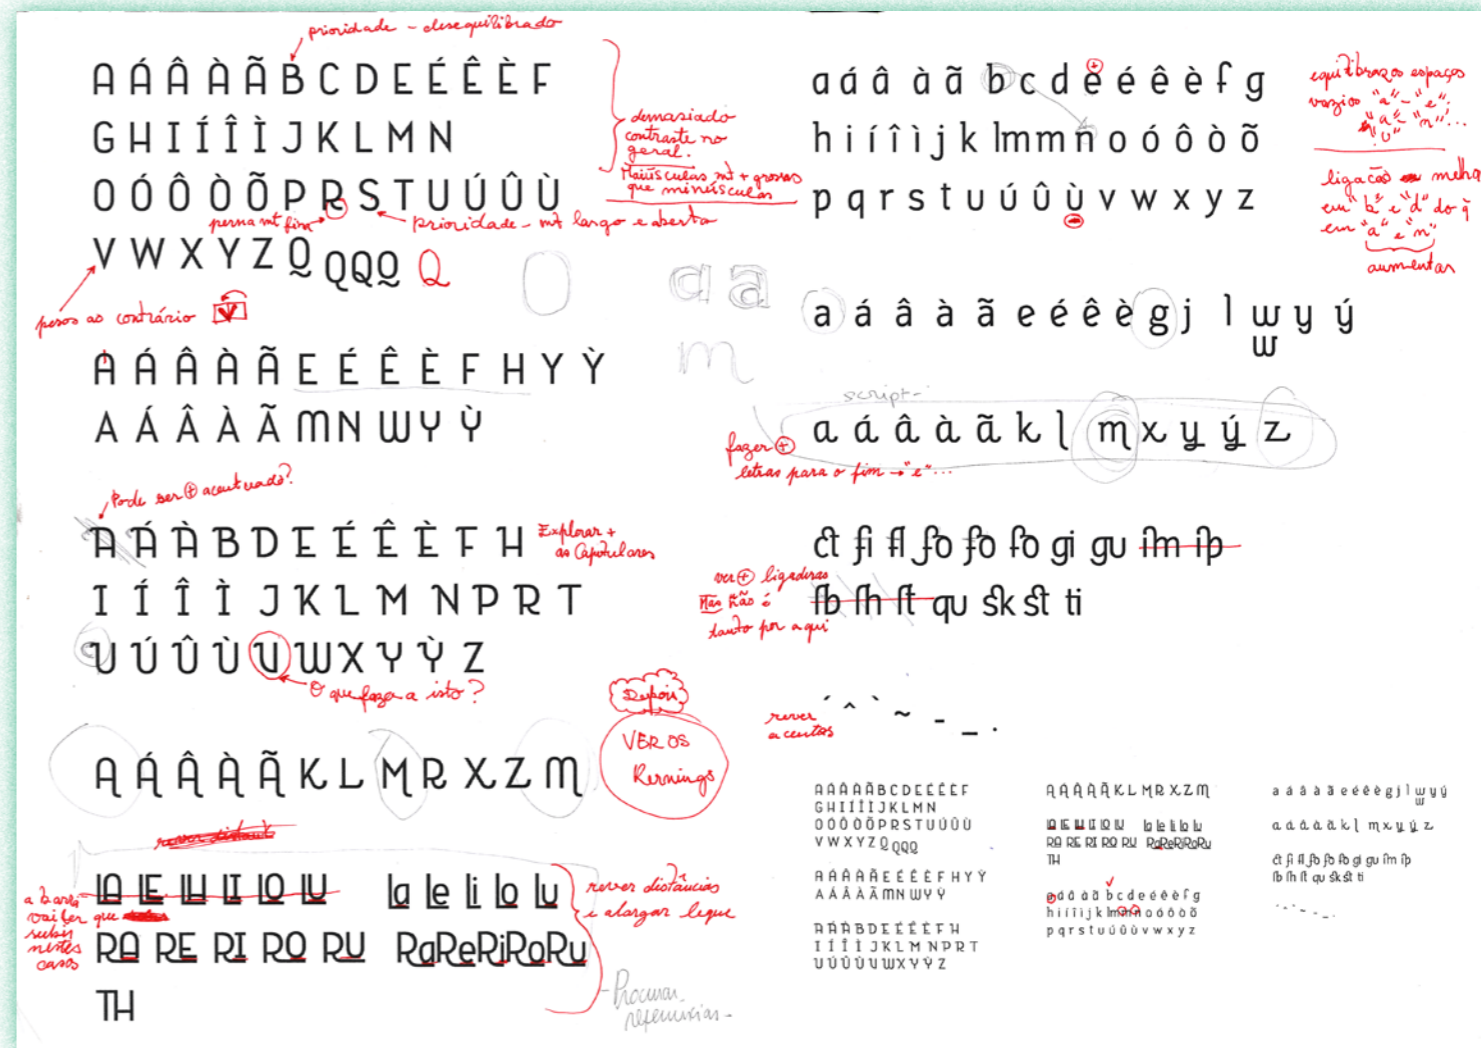 prioridade - desequilibrado
A Á Â À Ã B C D E É Ê È F
G H I Í Î Ì J K L M N
O Ó Ô Ò Õ P R S T U Ú Û Ù
demasiado
contraste no
geral.
Maiúsculas mt + grossas
que minúsculas
perna mt fina
prioridade - mt largo e aberta
V W X Y Z Q Q Q Q Q
pesos ao contrário V
a a
m
A Á Â À Ã E É Ê È F H Y Ỳ
A Á Â À Ã M N W Y Ỳ
Pode ser + acentuado?
A Á À B D E É Ê È F H
Explorar +
as Capitulares
I Í Î Ì J K L M N P R T
U Ú Û Ù U W X Y Ỳ Z
O que faço a isto?
Depois
VER OS
Kernings
A Á Â À Ã K L M R X Z M
rever distanc
LA LE LU LI LO LU la le li lo lu
a barra
vai ter que
subir
nestes
casos
rever distâncias
e alargar leque
RA RE RI RO RU Ra Re Ri Ro Ru
TH
- Procurar
referências -
a á â à ã b c d e é ê è f g
h i í î ì j k l m m n o ó ô ò õ
p q r s t u ú û ù v w x y z
equilibrar os espaços
vazios "a" - "e"
"a" - "n"...
"u"
ligação melhor
em "b" e "d" do q
em "a" e "n"
aumentar
a á â à ã e é ê è g j l w y ý
w
script -
a á â à ã k l m x y ý z
fazer +
letras para o fim → "e"...
ct fi fl fo fo fo gi gu im ip
ver + ligaduras
Mas não é
tanto por aqui
fb fh ft qu sk st ti
rever
acentos
´ ^ ` ~ - _ .
A Á Â À Ã B C D E É Ê È F
G H I Í Î Ì J K L M N
O Ó Ô Ò Õ P R S T U Ú Û Ù
V W X Y Z Q Q Q Q
A Á Â À Ã E É Ê È F H Y Ỳ
A Á Â À Ã M N W Y Ỳ
A Á À B D E É Ê È F H
I Í Î Ì J K L M N P R T
U Ú Û Ù U W X Y Ỳ Z
A Á Â À Ã K L M R X Z M
LA LE LU LI LO LU la le li lo lu
RA RE RI RO RU Ra Re Ri Ro Ru
TH
a á â à ã b c d e é ê è f g
h i í î ì j k l m m n o ó ô ò õ
p q r s t u ú û ù v w x y z
a á â à ã e é ê è g j l w y ý
w
a á â à ã k l m x y ý z
ct fi fl fo fo fo gi gu im ip
fb fh ft qu sk st ti
´ ^ ` ~ - _ .